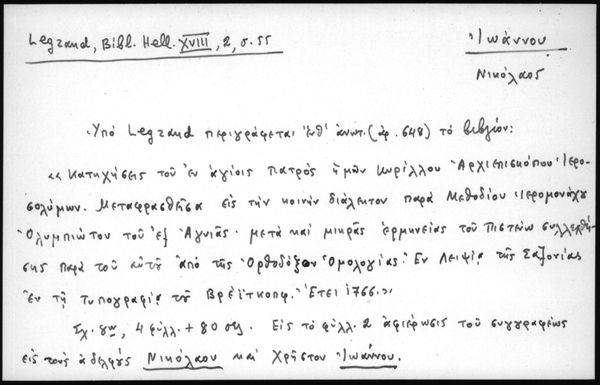 Legrand, Bibl. Hell. XVIII, 2, σ. 55
Ἰωάννου
Νικόλαος
Ὑπὸ Legrand περιγράφεται ἔνθ' ἀνωτ. (ἀρ. 648) τὸ βιβλίον:
«Κατηχήσεις τοῦ ἐν ἁγίοις Πατρὸς ἡμῶν Κυρίλλου Ἀρχιεπισκόπου Ἱερο-
σολύμων. Μεταφρασθεῖσαι εἰς τὴν κοινὴν διάλεκτον παρὰ Μεθοδίου Ἱερομονάχου
Ὀλυμπιώτου τοῦ ἐξ Ἁγιᾶς· μετὰ καὶ μικρᾶς ἑρμηνείας τοῦ Πιστεύω συλλεχθεί-
σης παρὰ τοῦ αὐτοῦ ἀπὸ τῆς Ὀρθοδόξου Ὁμολογίας. Ἐν Λειψίᾳ τῆς Σαξονίας
Ἐν τῇ τυπογραφίᾳ τοῦ Βρεϊτκοπφ. Ἔτει 1766.»
Σχ. 8ον, 4 φύλλ. + 80 σελ. Εἰς τὸ φύλλ. 2 ἀφιέρωσις τοῦ συγγραφέως
εἰς τοὺς ἀδελφοὺς Νικόλαον καὶ Χρῆστον Ἰωάννου.